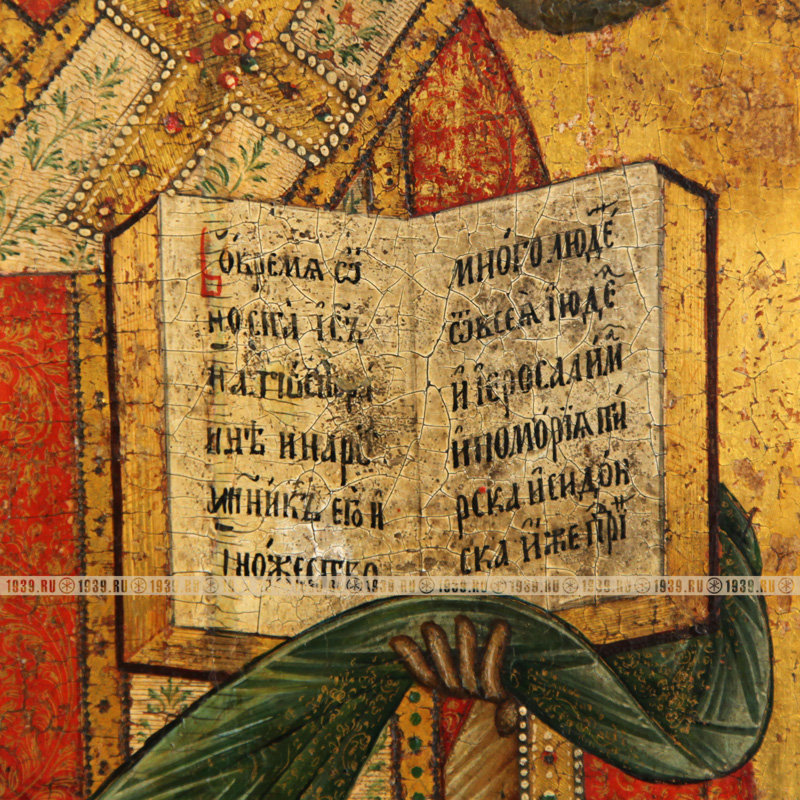 Во время ѿ
но ста І҃съ
на
инѣ и наро
ученикъ его и
множество
мно́го люде́
ѿ всеѧ І҆юде
и҆ І҆еросали́м
и҆ помо́рїѧ ти́
рска и҆ сидо́н
ска и҆же прї
1939.RU 1939.RU 1939.RU 1939.RU 1939.RU 1939.RU 1939.RU 1939.RU 1939.RU 1939.RU 1939.RU